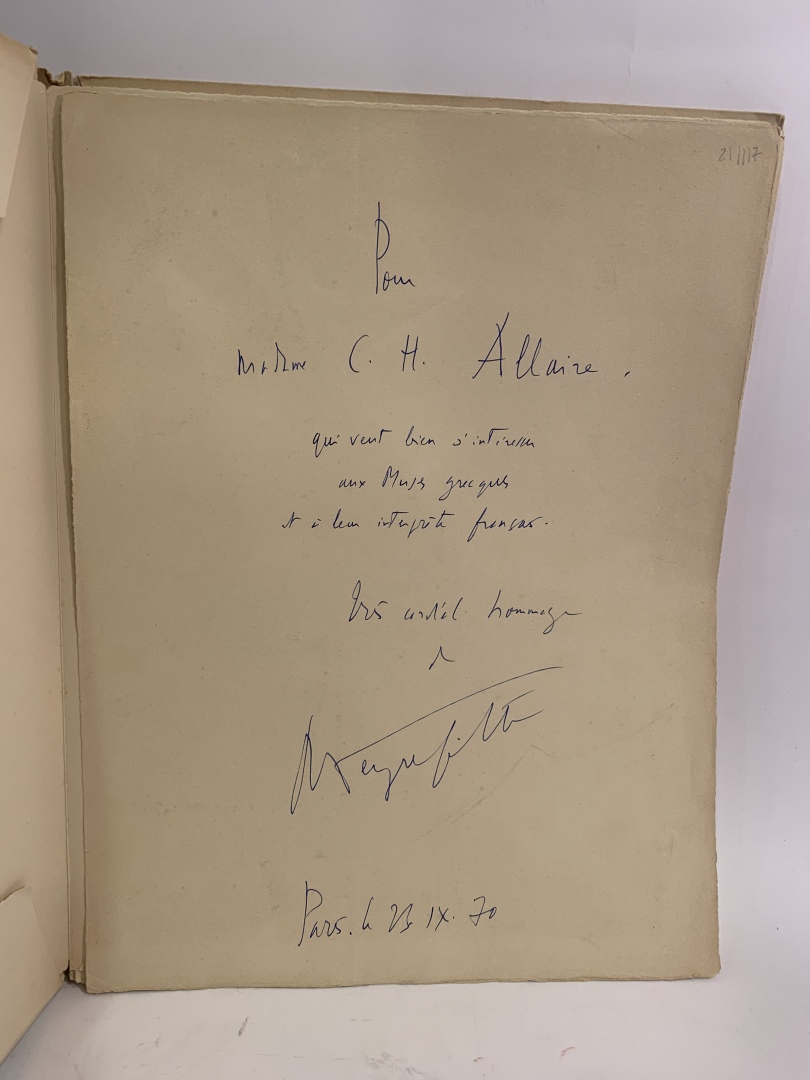 21/117
Pour
Madame C. H. Allaire,
qui veut bien s'intéresser
aux Muses grecques
et à leur interprète français.
Très cordial hommage
de
R Peyrefitte
Paris. le 23 IX. 70